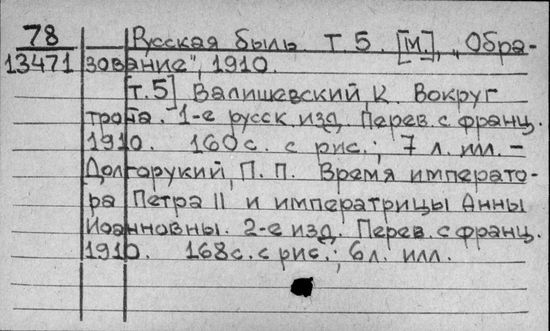 78 Русская быль. Т. 5. [М.], „Обра-
13471 зование", 1910.
[т. 5] Валишевский, К. Вокруг
трона. 1-е русск. изд. Перев. с франц.
1910. 160 с. с рис.; 7 л. илл. –
Долгорукий, П. П. Время императо-
ра Петра II и императрицы Анны
Иоанновны. 2-е изд. Перев. с франц.
1910. 168 с. с рис.; 6 л. илл.